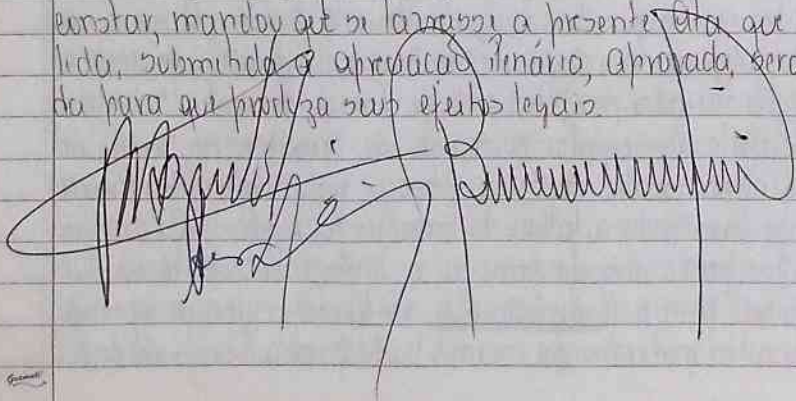 constar, mandou que se lavrasse a presente Ata que
lida, submetida a apreciação Plenária, aprovada, será
da para que produza seus efeitos legais.